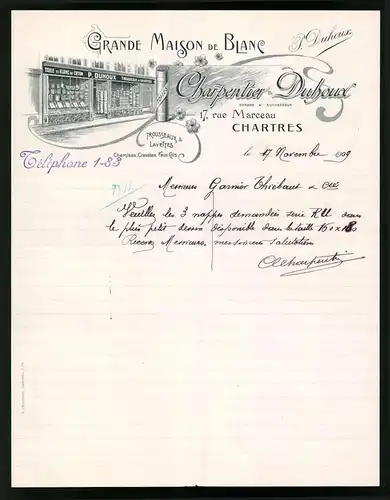 Grande Maison de Blanc
P. Duhoux
TOILE & BLANC DE COTON P. DUHOUX TROUSSEAUX & LAYETTES
Charpentier-Duhoux
GENDRE & SUCCESSEUR
17, rue Marceau
CHARTRES
TROUSSEAUX & LAYETTES
Chemises, Cravates, Faux-Cols
Téléphone 1-83
le 17 Novembre 1909
Messieurs Garnier Thiebaut & Cie
Veuillez les 3 nappes demandées série RU dans
le plus petit dessin disponible dans la taille 150 x 180
Recevez Messieurs, mes sincères salutations
Charpentier